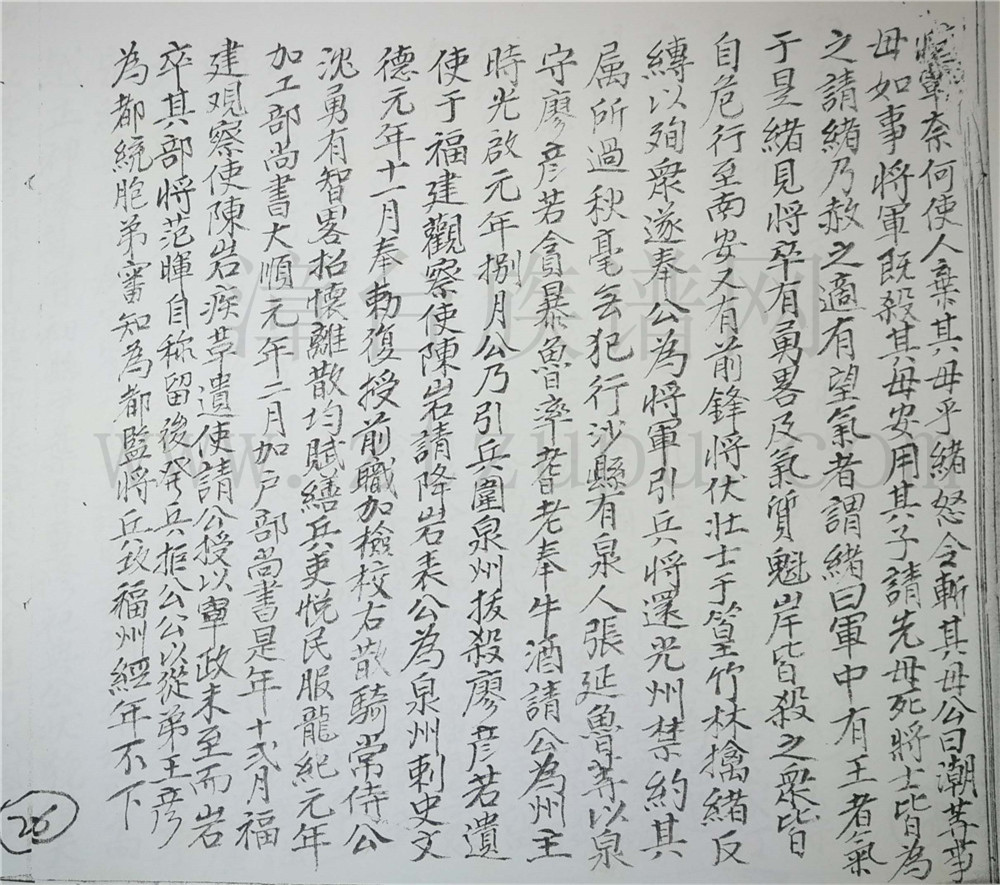 軍奈何使人棄其母乎緒怒令斬其母公曰潮等事
母如事將軍既殺其母安用其子請先母死將士皆為
之請緒乃赦之適有望氣者謂緒曰軍中有王者氣
于是緒見將卒有勇畧及氣質魁岸皆殺之眾皆
自危行至南安又有前鋒將伏壯士于篁竹林擒緒反
縛以殉眾遂奉公為將軍引兵將還光州禁約其
属所過秋毫無犯行沙縣有泉人張延魯等以泉
守廖彦若貪暴魯率耆老奉牛酒請公為州主
時光啟元年捌月公乃引兵圍泉州拔殺廖彦若遺
使于福建觀察使陳岩請降岩表公為泉州刺史文
德元年十一月奉勅復授前職加檢校右散騎常侍公
沈勇有智畧招懷離散均賦繕兵吏悅民服龍紀元年
加工部尚書大順元年二月加戶部尚書是年十弍月福
建观察使陳岩疾草遺使請公授以軍政未至而岩
卒其部將范暉自称留後發兵拒公公以從弟王彦
為都統胞弟審知為都監將兵攻福州經年不下
26
漳台族谱网